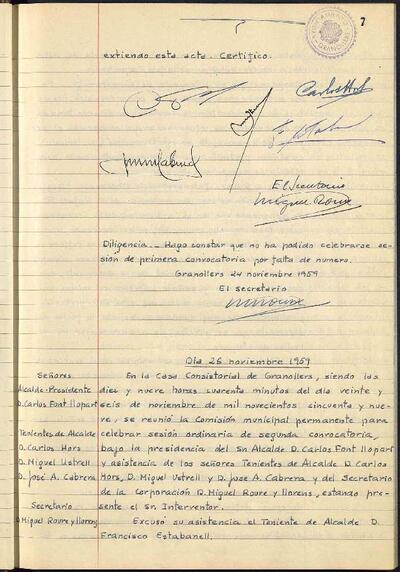 7
AYUNTAMIENTO
GRANOLLERS
extiendo esta acta. Certifico.
Carlos Hors
El Secretario
Miguel Roure
Diligencia.- Hago constar que no ha podido celebrarse se-
sión de primera convocatoria por falta de numero.
Granollers 24 noviembre 1959
El secretario
Dia 26 noviembre 1959
Señores
Alcalde-Presidente
D. Carlos Font Llopart
Tenientes de Alcalde
D. Carlos Hors
D. Miguel Ustrell
D. José A. Cabrera
Secretario
D. Miguel Roure y Llorens
En la Casa Consistorial de Granollers, siendo las
diez y nueve horas cuarenta minutos del dia veinte y
seis de noviembre de mil novecientos cincuenta y nue-
ve, se reunió la Comisión municipal permanente para
celebrar sesión ordinaria de segunda convocatoria,
bajo la presidencia del Sr. Alcalde D. Carlos Font Llopart
y asistencia de los señores Tenientes de Alcalde D. Carlos
Hors, D. Miguel Ustrell y D. José A. Cabrera y del Secretario
de la Corporación D. Miguel Roure y Llorens, estando presen-
te el Sr. Interventor.
Excusó su asistencia el Teniente de Alcalde D.
Francisco Estabanell.